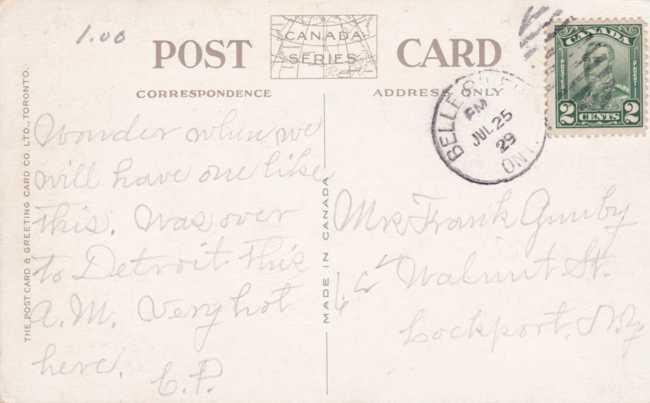 1.00
POST CARD
CANADA
SERIES
CORRESPONDENCE
ADDRESS ONLY
CANADA
2 CENTS 2
BELLE
PM
JUL 25
29
ONT.
THE POST CARD & GREETING CARD CO. LTD., TORONTO.
Wonder when we
will have one like
this. Was over
to Detroit this
A.M. Very hot
here. C.P.
MADE IN CANADA
Mrs Frank Gumby
Walnut St.
Lockport, N.Y.